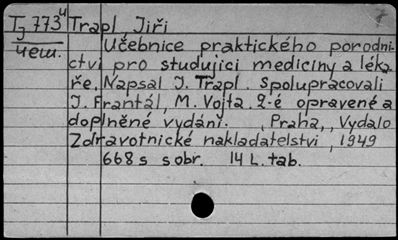 Tj 773 4 Trapl Jiři
чеш. Učebnice praktického porodni-
ctví pro studující medicíny a léka-
ře. Napsal J. Trapl. Spolupracovali
J. Frantál, M. Vojta. 2-é opravené a
doplněné vydání. , Praha,, Vydalo
Zdravotnické nakladatelství , 1949
668 s s obr. 14 L. tab.